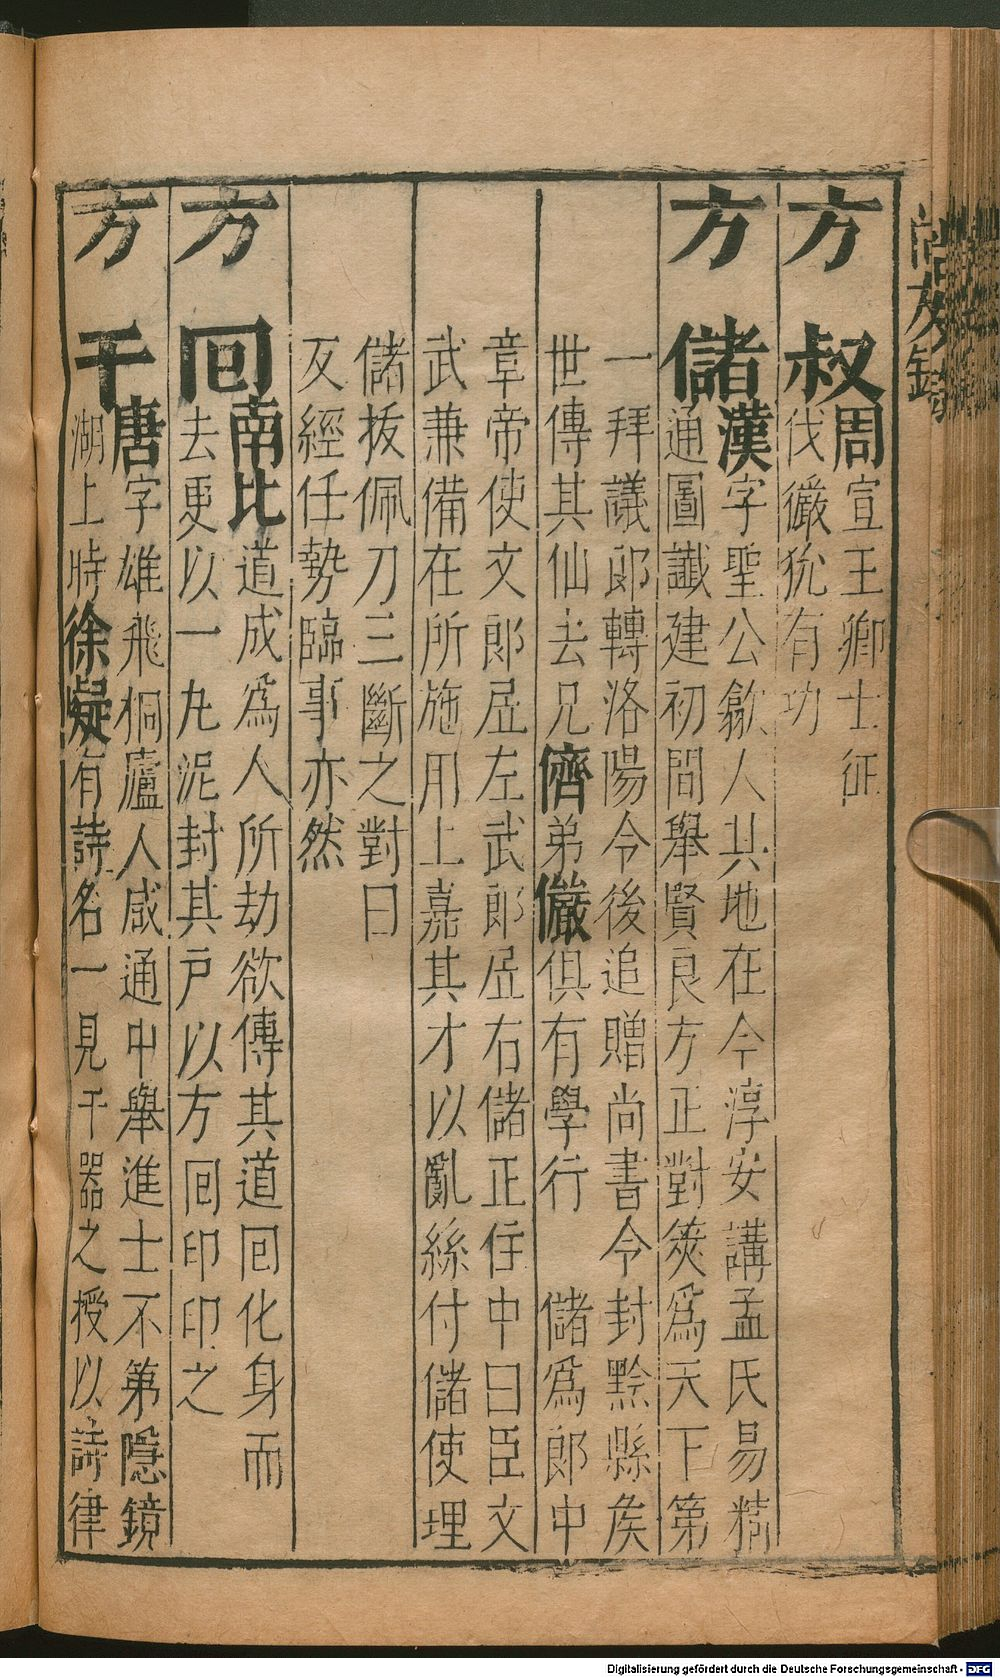 方叔周宣王卿士征
伐玁狁有功
方儲漢字聖公歙人其地在今淳安講孟氏易精
通圖讖建初間舉賢良方正對策爲天下第
一拜議郎轉洛陽令後追贈尚書令封黟縣矦
世傳其仙去兄儕弟儼俱有學行　儲爲郎中
章帝使文郎居左武郎居右儲正住中曰臣文
武兼備在所施用上嘉其才以亂絲付儲使理
儲拔佩刀三斷之對曰
反經任勢臨事亦然
方回南北道成爲人所劫欲傳其道回化身而
去更以一丸泥封其戸以方回印印之
方干唐字雄飛桐廬人咸通中舉進士不第隱鏡
湖上時徐凝有詩名一見干器之授以詩律
尚友錄
Digitalisierung gefördert durch die Deutsche Forschungsgemeinschaft - DFG